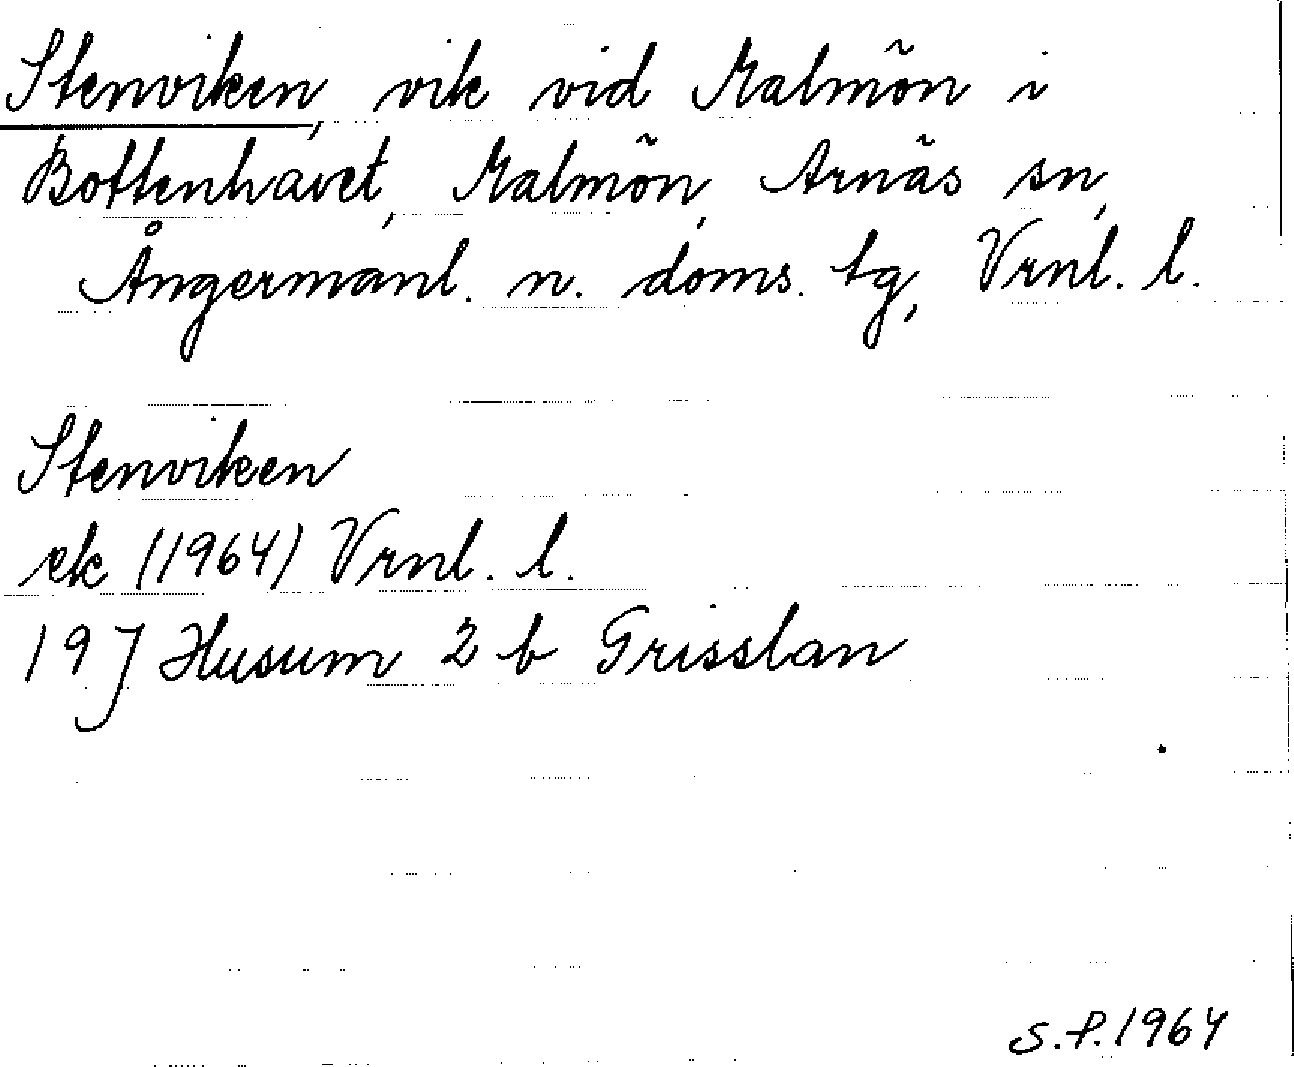 Stenviken, vik vid Malmön i
Bottenhavet, Malmön, Arnäs sn,
Ångermanl. n. doms. tg, Vrnl. l.
Stenviken
ek (1964) Vrnl. l.
19 J Husum 2 b Grisslan
S.P.1964